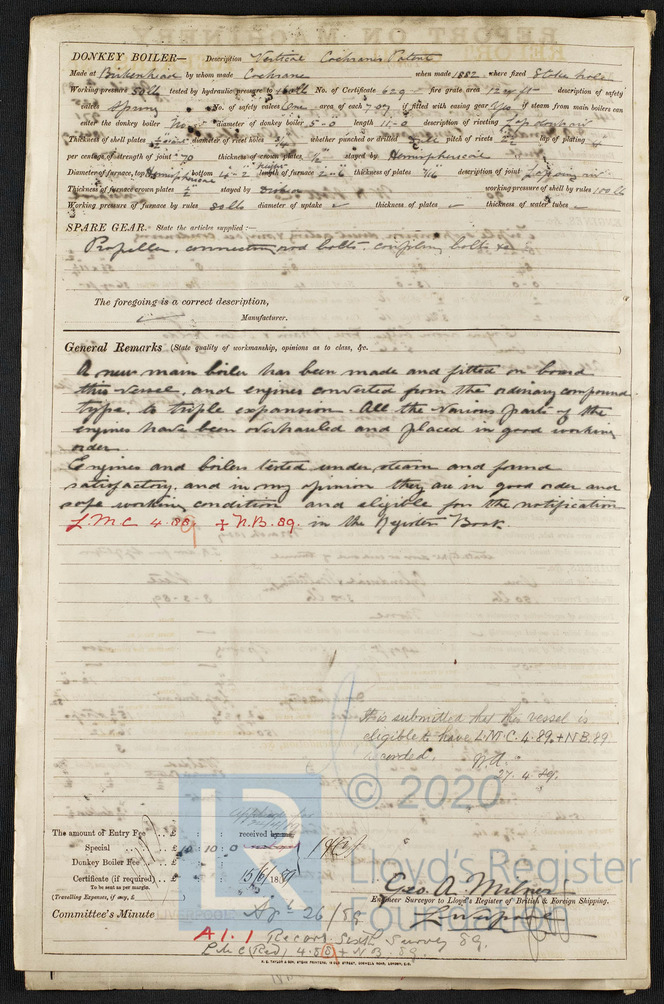 DONKEY BOILER— Description Vertical Cochrane's Patent
Made at Birkenhead by whom made Cochrane when made 1882 where fixed Stoke hole
Working pressure 50 lb tested by hydraulic pressure to lb No. of Certificate 629 fire grate area 12 description of safety
valves Spring No. of safety valves One area of each 7.07 if fitted with easing gear Yes if steam from main boilers can
enter the donkey boiler diameter of donkey boiler 5-0 length 11-0 description of riveting Lap
Thickness of shell plates diameter of rivet holes 3/4 whether punched or drilled pitch of rivets lap of plating
per centage of strength of joint 70 thickness of crown plates 1/2 stayed by Hemispherical
Diameter of furnace, top Hemispherical bottom 4-2 length of furnace 2-6 thickness of plates 7/16 description of joint Lap
Thickness of furnace crown plates 1/2 stayed by working pressure of shell by rules lb
Working pressure of furnace by rules 80 lb diameter of uptake thickness of plates thickness of water tubes
SPARE GEAR. State the articles supplied:—
Propeller, connecting rod bolts, coupling bolts &c
The foregoing is a correct description,
Manufacturer.
General Remarks (State quality of workmanship, opinions as to class, &c.
A new main boiler has been made and fitted on board
this vessel, and engines converted from the ordinary compound
type, to triple expansion. All the various parts of the
engines have been overhauled and placed in good working
order.
Engines and boilers tested under steam and found
satisfactory, and in my opinion they are in good order and
safe working condition and eligible for the notification
L.M.C. 4.89. + N.B. 89. in the Register Book.
It is submitted that this vessel is
eligible to have L.M.C. 4.89. + N.B. 89
recorded.
27.4.89.
© 2020
Lloyd's Register
Foundation
The amount of Entry Fee .. £ : : received by me,
Special .. £ 10 : 10 : 0
Donkey Boiler Fee .. £ : :
Certificate (if required) .. £ : : 15/6/1889
To be sent as per margin.
(Travelling Expenses, if any, £ )
Geo. A. Milner
Engineer Surveyor to Lloyd's Register of British & Foreign Shipping.
Liverpool
Committee's Minute LIVERPOOL Apl 26/89
A1.1 Record Survey 89.
L.M.C. (Red) 4.89 + N.B. 89.